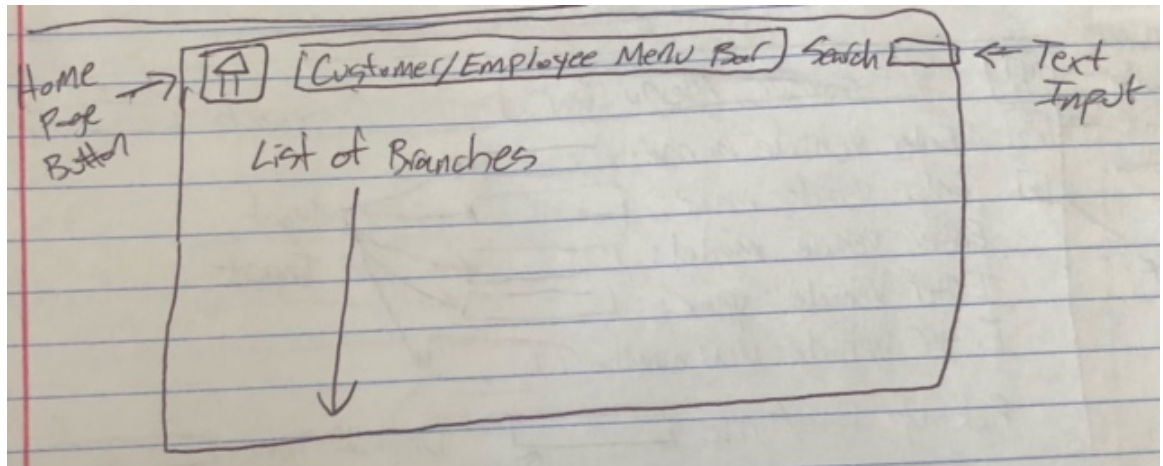 Home
Page
Button
Customer/Employee Menu Bar
Search
Text
Input
List of Branches